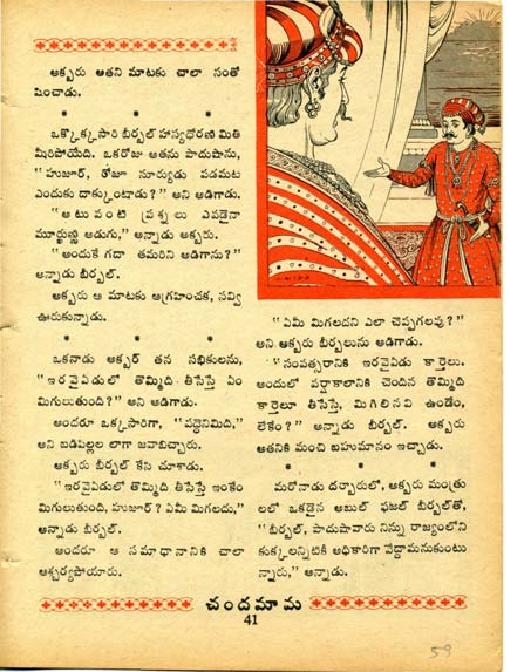 అక్బరు అతని మాటకు చాలా సంతో
షించాడు.
* * *
ఒక్కొక్కసారి బీర్బల్ హాస్యధోరణి మితి
మీరిపోయేది. ఒకరోజు అతను పాదుషాను,
"హుజూర్, రోజూ సూర్యుడు పడమట
ఎందుకు దాక్కుంటాడు?" అని అడిగాడు.
"అటువంటి ప్రశ్నలు ఎవడైనా
మూర్ఖుణ్ణి అడుగు," అన్నాడు అక్బరు.
"అందుకే గదా తమరిని అడిగాను?"
అన్నాడు బీర్బల్.
అక్బరు ఆ మాటకు ఆగ్రహించక, నవ్వి
ఊరుకున్నాడు.
* * *
ఒకనాడు అక్బర్ తన సభికులను,
"ఇరవైఏడులో తొమ్మిది తీసేస్తే ఏం
మిగులుతుంది?" అని అడిగాడు.
అందరూ ఒక్కసారిగా, "పద్దెనిమిది,"
అని బడిపిల్లల లాగా జవాబిచ్చారు.
అక్బరు బీర్బల్ కేసి చూశాడు.
"ఇరవైఏడులో తొమ్మిది తీసేస్తే ఇంకేం
మిగులుతుంది, హుజూర్? ఏమీ మిగలదు,"
అన్నాడు బీర్బల్.
అందరూ ఆ సమాధానానికి చాలా
ఆశ్చర్యపోయారు.
"ఏమీ మిగలదని ఎలా చెప్పగలవు?"
అని అక్బరు బీర్బలును అడిగాడు.
"సంవత్సరానికి ఇరవైఏడు కార్తెలు.
అందులో వర్షాకాలానికి చెందిన తొమ్మిది
కార్తెలూ తీసేస్తే, మిగిలినవి ఉండేం,
లేకేం?" అన్నాడు బీర్బల్. అక్బరు
అతనికి మంచి బహుమానం ఇచ్చాడు.
* * *
మరొనాడు దర్బారులో, అక్బరు మంత్రు
లలో ఒకడైన అబుల్ ఫజల్ బీర్బల్‌తో,
"బీర్బల్, పాదుషావారు నిన్ను రాజ్యంలోని
కుక్కలన్నిటికీ అధికారిగా వేద్దామనుకుంటు
న్నారు," అన్నాడు.
చందమామ
41
59